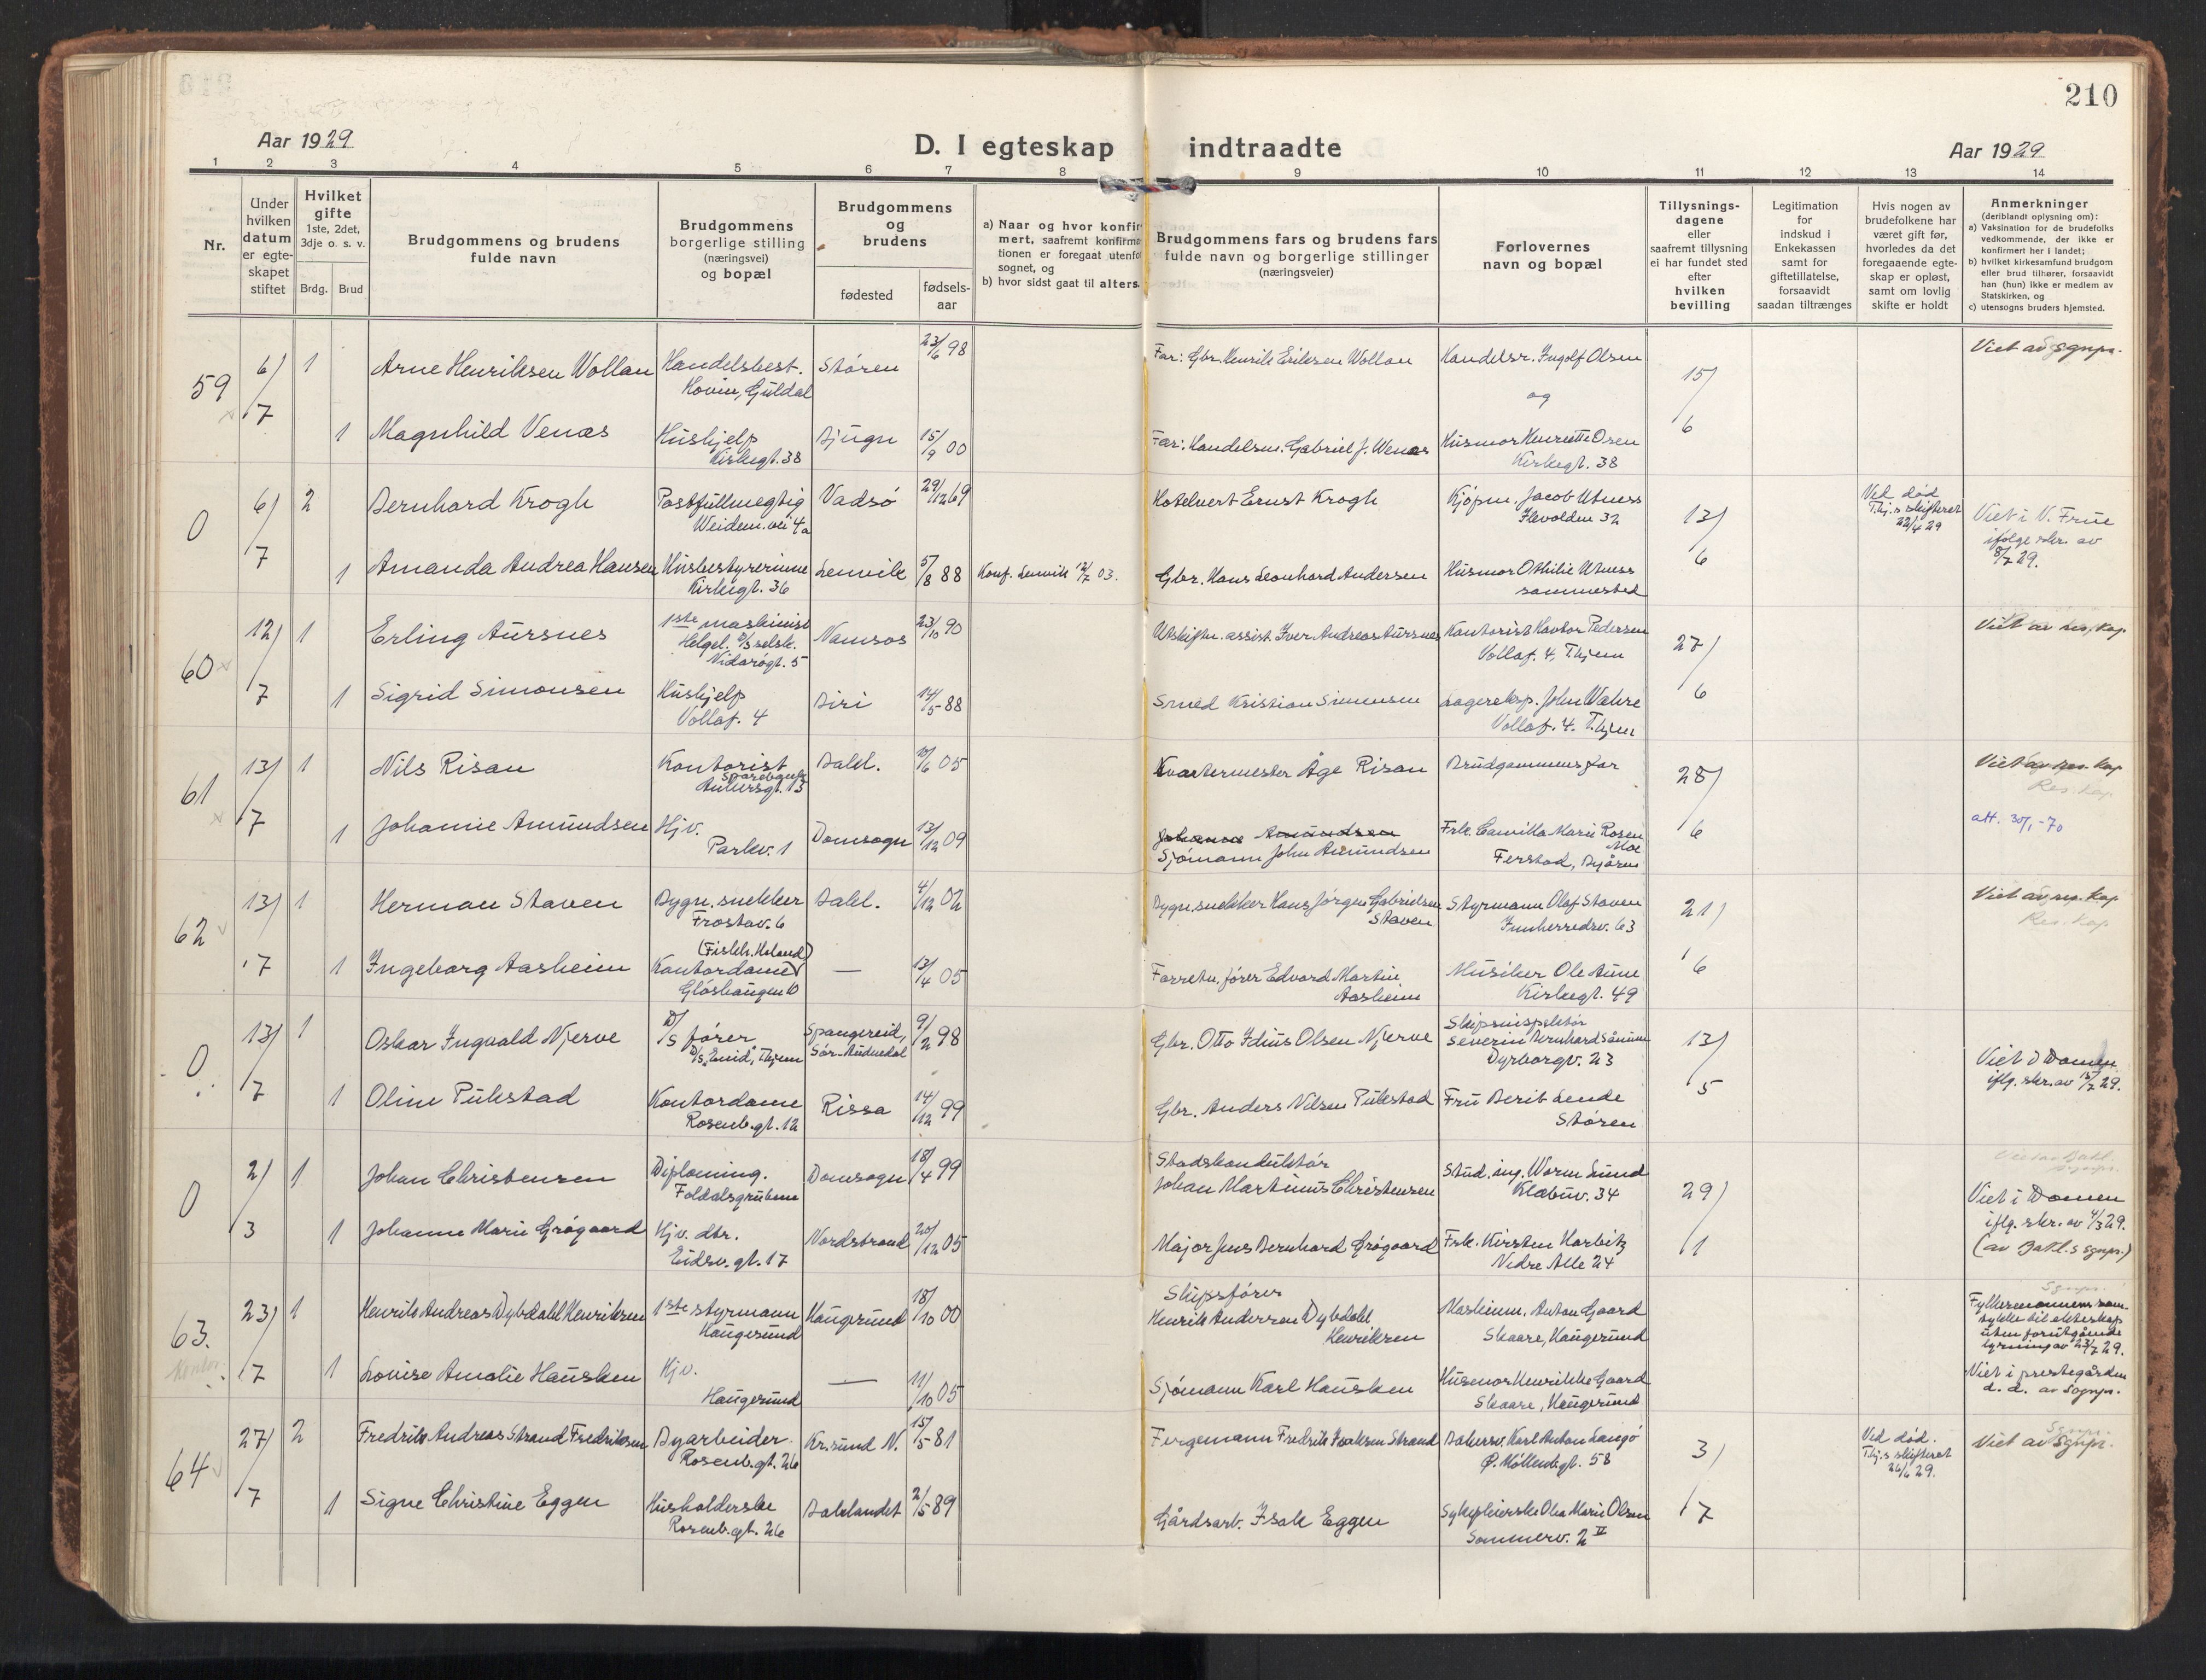 210
Aar 1929
D. I egteskap indtraadte
Aar 1929
1 2 3 4 5 6 7 8 9 10 11 12 13 14
Nr.
Under
hvilken
datum
er egte-
skapet
stiftet
Hvilket
gifte
1ste, 2det,
3dje o. s. v.
Brdg. Brud
Brudgommens og brudens
fulde navn
Brudgommens
borgerlige stilling
(næringsvei)
og bopæl
Brudgommens
og
brudens
fødested
fødsels-
aar
a) Naar og hvor konfir
mert, saafremt konfirma
tionen er foregaat utenfo
sognet, og
b) hvor sidst gaat til alters.
Brudgommens fars og brudens fars
fulde navn og borgerlige stillinger
(næringsveier)
Forlovernes
navn og bopæl
Tillysnings-
dagene
eller
saafremt tillysning
ei har fundet sted
efter
hvilken
bevilling
Legitimation
for
indskud i
Enkekassen
samt for
giftetillatelse,
forsaavidt
saadan tiltrænges
Hvis nogen av
brudefolkene har
været gift før,
hvorledes da det
foregaaende egte-
skap er opløst,
samt om lovlig
skifte er holdt
Anmerkninger
(deriblandt oplysning om):
a) Vaksination for de brudefolks
vedkommende, der ikke er
konfirmert her i landet;
b) hvilket kirkesamfund brudgom
eller brud tilhører, forsaavidt
han (hun) ikke er medlem av
Statskirken, og
c) utensogns bruders hjemsted.
59 6/7 1 Arne Henriksen Wollan Handelsbest. Støren 23/6 98 Far: Gbr. Henrik Eriksen Wollan Handelsr. Ingolf Olsen 15/6 Viet av sgnpr.
Hovin, Guldal og
1 Magnhild Venæs Hushjelp Bjugn 15/9 00 Far: Handelsm. Gabriel J. Wenæs Husmor Henriette Osen
Kirkegt. 38 Kirkegt. 38
0 6/7 2 Bernhard Krogh Postfullmegtig Vadsø 29/12 69 Hotelvert Ernst Krogh Kjøpm. Jacob Utness 13/6 Ved død
Weidem.vei 4a Ilevolden 32 Thj.s skifteret
22/4 29
Viet i V. Frue
ifølge skr. av
8/7 29.
1 Amanda Andrea Hansen Husbestyrerinne Lenvik 5/8 88 Konf. Lenvik 12/7 03. Gbr. Hans Leonhard Andersen Husmor Othilie Utness
Kirkegt. 36 sammested
60 12/7 1 Erling Aursnes 1ste maskinist Namsos 23/10 90 Utskiftn. assist. Iver Andreas Aursnes Kontorist Havtor Pedersen 27/6 Viet av res. kap.
Helgel. D/S selsk. Vollaf. 4, Thjem
Nidarøgt. 5
1 Sigrid Simonsen Hushjelp Biri 14/5 88 Smed Kristian Simensen Lagereksp. John Wahre
Vollaf. 4 Vollaf. 4. Thjem
61 13/7 1 Nils Risan Kontorist Bakl. 10/6 05 Kvartermester Åge Risan Brudgommens far 28/6 Viet av res. kap
Sparebank Res. kap.
Ankersgt. 13
1 Johanne Amundsen Hjv. Domsogn 13/12 09 Johanne Amundsen Frk. Camilla Marie Rosen att. 30/1-70
Parkv. 1 Sjømann John Amundsen Moe
Ferstad, Byåsen
62 13/7 1 Herman Staven Bygn. snekker Bakl. 4/12 02 Bygn. snekker Hans Jørgen Gabrielsen Styrmann Olaf Staven 21/6 Viet av res. kap
Frostav. 6 Staven Innherredsv. 63 Res. kap
(Fiskh. Holand)
1 Ingeborg Aasheim Kontordame — 13/4 05 Forretn. fører Edvard Martin Musiker Ole Aune
Gløshaugen 10 Aasheim Kirkegt. 49
0 13/7 1 Oskar Ingvald Njerve D/S fører Spangereid, 9/2 98 Gbr. Otto Idius Olsen Njerve Skipsinspektør 13/5
D/S "Enid", Thjem Sør-Audnedal Severin Bernhard Sånum
Dyrborgv. 23
Viet i Domen
iflg. skr. av 15/7 29.
1 Oline Pukstad Kontordame Rissa 14/12 99 Gbr. Anders Nilsen Pukstad Fru Berit Lende
Rosenb. gt. 12 Støren
0 2/3 1 Johan Christensen Diploming. Domsogn 18/4 99 Stadskonduktør Stud. ing. Worm Lund 29/1
Foldalsgrubene Johan Martinus Christensen Klæbuv. 34
Viet i Domen
iflg. skr. av 4/3 29.
(av Bakl.s sgnpr.)
1 Johanne Marie Grøgaard Hjv. dtr. Nordstrand 20/12 05 Major Jens Bernhard Grøgaard Frk. Kirsten Harbitz
Eidsv. gt. 17 Nedre Alle 24
63. 23/7 1 Henrik Andreas Dybdahl Henriksen 1ste styrmann Haugesund 18/10 00 Skipsfører Maskinm. Anton Gaard
Kontor Haugesund Henrik Andersen Dybdahl Skaare, Haugesund
Henriksen
Sgnpr.
Fylkesmannens sam-
tykke til ekteskap
uten forutgående
lysning av 23/7 29.
1 Lovise Amalie Hausken Hjv. — 11/10 05 Sjømann Karl Hausken Husmor Henrikke Gaard Viet i prestegården
Haugesund Skaare, Haugesund d. d. av Sognpr.
64 27/7 2 Fredrik Andreas Strand Fredriksen Byarbeider Kr.sund N. 15/5 81 Fergemann Fredrik Isaksen Strand Bakersv. Karl Anton Langø 3/7 Ved død. Viet av Sgnpr.
Rosenb. gt. 26 Ø. Møllenb.gt. 58 Thj.s skifteret
26/6 29.
1 Signe Christine Eggen Husholderske Baklandet 2/5 89 Gårdsarb. Isak Eggen Sykepleierske Olea Marie Olsen
Rosenb. gt. 26 Sommerv. 2 II